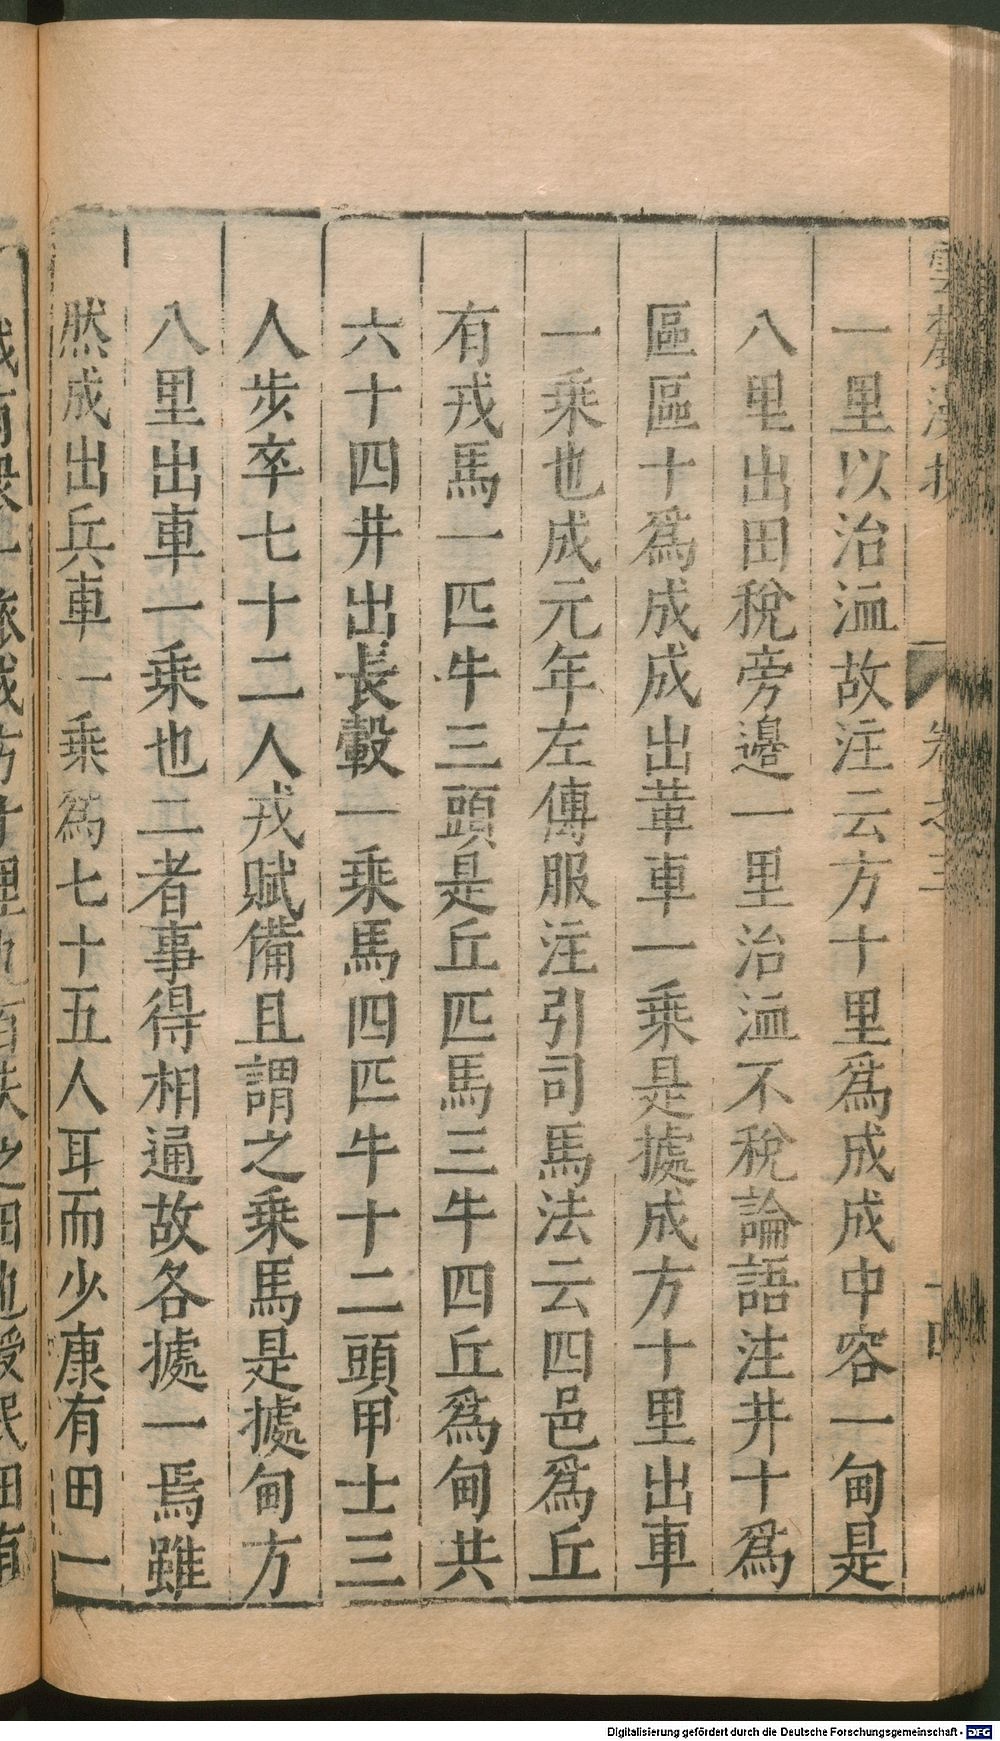 一里以治洫故注云方十里爲成成中容一甸是
八里出田稅旁邊一里治洫不稅論語注井十爲
區區十爲成成出革車一乘是據成方十里出車
一乘也成元年左傳服注引司馬法云四邑爲丘
有戎馬一匹牛三頭是丘匹馬三牛四丘爲甸共
六十四井出長轂一乘馬四匹牛十二頭甲士三
人步卒七十二人戎賦備且謂之乘馬是據甸方
八里出車一乘也二者事得相通故各據一焉雖
然成出兵車一乘爲七十五人耳而少康有田一
卷之三
Digitalisierung gefördert durch die Deutsche Forschungsgemeinschaft - DFG